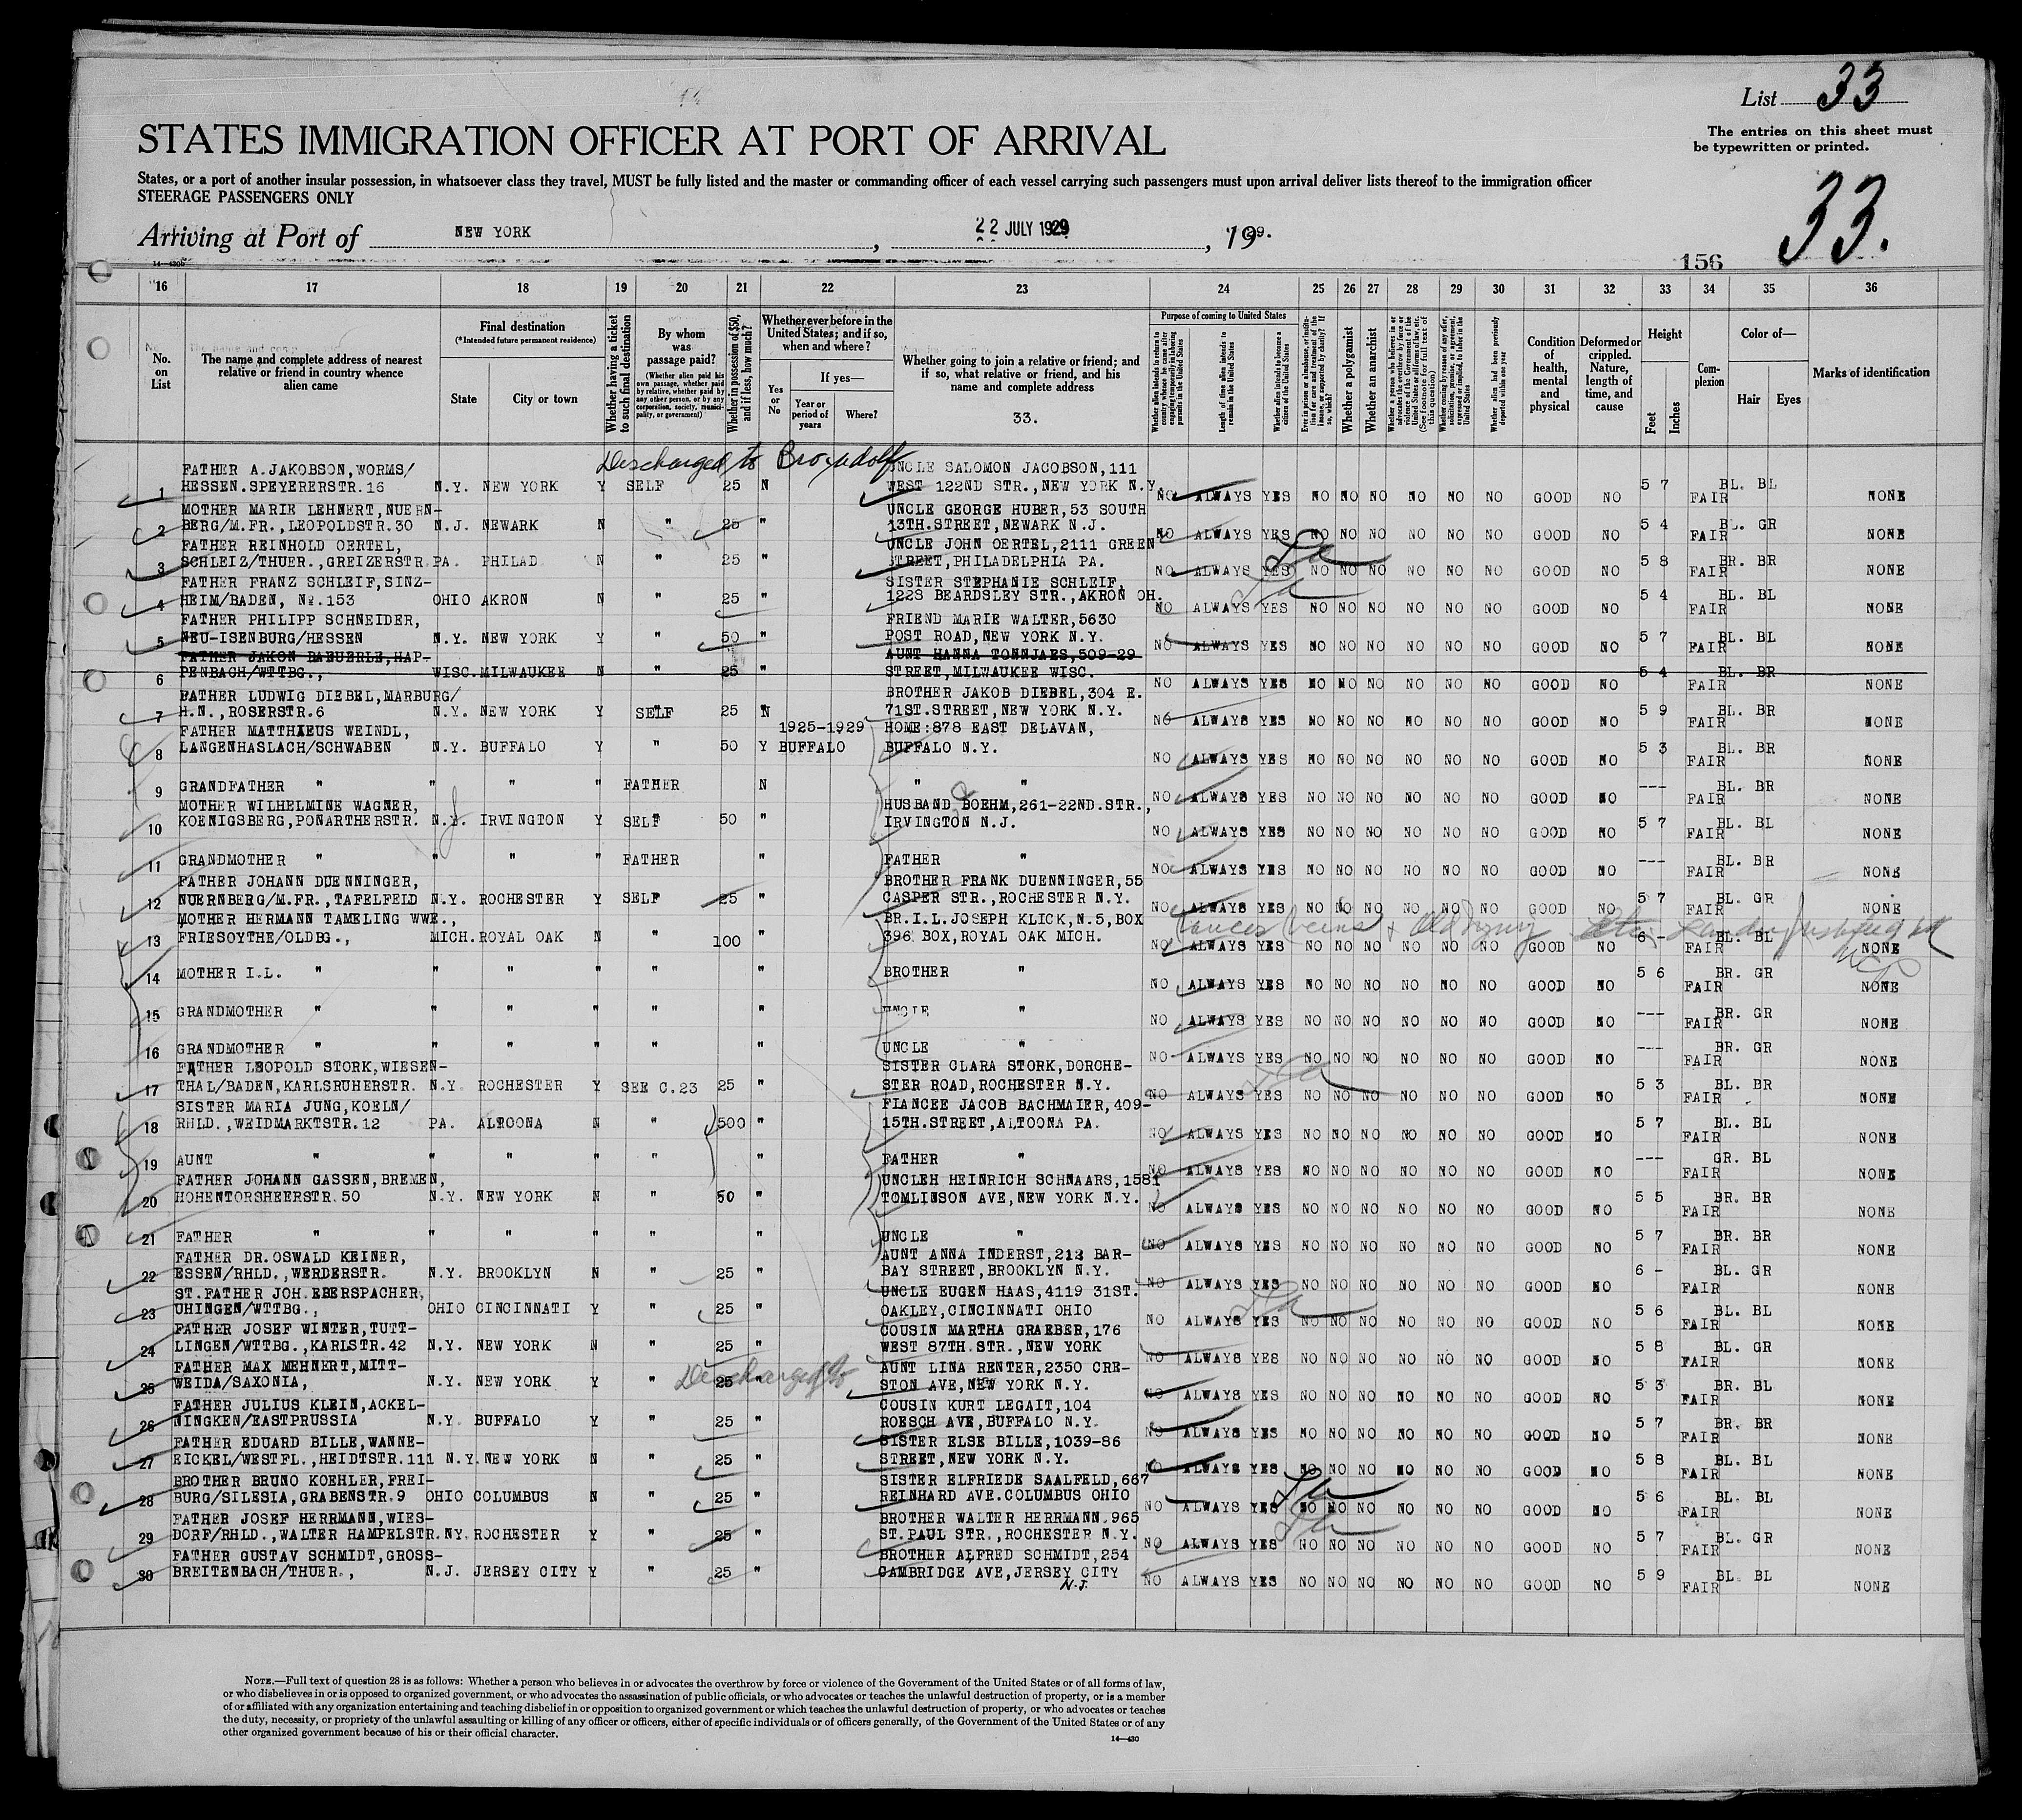 List 33
The entries on this sheet must
be typewritten or printed.
STATES IMMIGRATION OFFICER AT PORT OF ARRIVAL
States, or a port of another insular possession, in whatsoever class they travel, MUST be fully listed and the master or commanding officer of each vessel carrying such passengers must upon arrival deliver lists thereof to the immigration officer
STEERAGE PASSENGERS ONLY
33.
Arriving at Port of NEW YORK, 22 JULY 1929, 1929.
14—430b
156
16 17 18 19 20 21 22 23 24 25 26 27 28 29 30 31 32 33 34 35 36
No. on List
The name and complete address of nearest relative or friend in country whence alien came
Final destination
(*Intended future permanent residence)
State
City or town
Whether having a ticket to such final destination
By whom was passage paid?
(Whether alien paid his own passage, whether paid by relative, whether paid by any other person, or by any corporation, society, municipality, or government)
Whether in possession of $50, and if less, how much?
Whether ever before in the United States; and if so, when and where?
Yes or No
If yes—
Year or period of years
Where?
Whether going to join a relative or friend; and if so, what relative or friend, and his name and complete address
33.
Purpose of coming to United States
Whether alien intends to return to country whence he came after engaging temporarily in laboring pursuits in the United States
Length of time alien intends to remain in the United States
Whether alien intends to become a citizen of the United States
Ever in prison or almshouse, or institution for care and treatment of the insane, or supported by charity? If so, which?
Whether a polygamist
Whether an anarchist
Whether a person who believes in or advocates the overthrow by force or violence of the Government of the United States or all forms of law, etc. (See footnote for full text of this question)
Whether coming by reason of any offer, solicitation, promise, or agreement, expressed or implied, to labor in the United States
Whether alien had been previously deported within one year
Condition of health, mental and physical
Deformed or crippled. Nature, length of time, and cause
Height
Feet
Inches
Complexion
Color of—
Hair
Eyes
Marks of identification
Discharged to
FATHER A.JAKOBSON,WORMS/ UNCLE SALOMON JACOBSON,111
1 HESSEN.SPEYERERSTR.16 N.Y. NEW YORK Y SELF 25 N WEST 122ND STR.,NEW YORK N.Y. NO ALWAYS YES NO NO NO NO NO NO GOOD NO 5 7 FAIR BL. BL NONE
MOTHER MARIE LEHNERT,NUERN- UNCLE GEORGE HUBER,53 SOUTH
2 BERG/M.FR.,LEOPOLDSTR.30 N.J. NEWARK N " 25 " 13TH.STREET,NEWARK N.J. NO ALWAYS YES NO NO NO NO NO NO GOOD NO 5 4 FAIR BL. GR NONE
FATHER REINHOLD OERTEL, UNCLE JOHN OERTEL,2111 GREEN
3 SCHLEIZ/THUER.,GREIZERSTR. PA. PHILAD N " 25 " STREET,PHILADELPHIA PA. NO ALWAYS YES NO NO NO NO NO NO GOOD NO 5 8 FAIR BR. BR NONE
FATHER FRANZ SCHLEIF,SINZ- SISTER STEPHANIE SCHLEIF,
4 HEIM/BADEN, No.153 OHIO AKRON N " 25 " 122S BEARDSLEY STR.,AKRON OH. NO ALWAYS YES NO NO NO NO NO NO GOOD NO 5 4 FAIR BL. BL NONE
FATHER PHILIPP SCHNEIDER, FRIEND MARIE WALTER,5630
5 NEU-ISENBURG/HESSEN N.Y. NEW YORK Y " 50 " POST ROAD,NEW YORK N.Y. NO ALWAYS YES NO NO NO NO NO NO GOOD NO 5 7 FAIR BL. BL NONE
FATHER JAKOB BAEUERLE,HAP- AUNT HANNA TONNJAES,509-29
6 PENBACH/WTTBG., WISC. MILWAUKEE N " 25 " STREET,MILWAUKEE WISC. NO ALWAYS YES NO NO NO NO NO NO GOOD NO 5 4 FAIR BL. BR NONE
FATHER LUDWIG DIEBEL,MARBURG/ BROTHER JAKOB DIEBEL,304 E.
7 H.N.,ROSERSTR.6 N.Y. NEW YORK Y SELF 25 N 71ST.STREET,NEW YORK N.Y. NO ALWAYS YES NO NO NO NO NO NO GOOD NO 5 9 FAIR BL. BR NONE
FATHER MATTHAEUS WEINDL, 1925-1929 HOME:878 EAST DELAVAN,
8 LANGENHASLACH/SCHWABEN N.Y. BUFFALO Y " 50 Y BUFFALO BUFFALO N.Y. NO ALWAYS YES NO NO NO NO NO NO GOOD NO 5 3 FAIR BL. BR NONE
9 GRANDFATHER " " " " FATHER N " " NO ALWAYS YES NO NO NO NO NO NO GOOD NO --- FAIR BL. BR NONE
MOTHER WILHELMINE WAGNER, HUSBAND BOEHM,261-22ND.STR.,
10 KOENIGSBERG,PONARTHERSTR. N.J. IRVINGTON Y SELF 50 " IRVINGTON N.J. NO ALWAYS YES NO NO NO NO NO NO GOOD NO 5 7 FAIR BL. BL NONE
11 GRANDMOTHER " " " " FATHER " FATHER " NO ALWAYS YES NO NO NO NO NO NO GOOD NO --- FAIR BL. BR NONE
FATHER JOHANN DUENNINGER, BROTHER FRANK DUENNINGER,55
12 NUERNBERG/M.FR.,TAFELFELD N.Y. ROCHESTER Y SELF 25 " CASPER STR.,ROCHESTER N.Y. NO ALWAYS YES NO NO NO NO NO NO GOOD NO 5 7 FAIR BL. GR NONE
MOTHER HERMANN TAMELING WWE., BR.I.L.JOSEPH KLICK,N.5,BOX
13 FRIESOYTHE/OLDBG., MICH. ROYAL OAK N " 100 " 396 BOX,ROYAL OAK MICH. NO ALWAYS YES NO NO NO NO NO NO GOOD NO 6 - FAIR BL. BL NONE
14 MOTHER I.L. " " " " " " BROTHER " NO ALWAYS YES NO NO NO NO NO NO GOOD NO 5 6 FAIR BR. GR NONE
15 GRANDMOTHER " " " " " " UNCLE " NO ALWAYS YES NO NO NO NO NO NO GOOD NO --- FAIR BR. GR NONE
16 GRANDMOTHER " " " " " " UNCLE " NO ALWAYS YES NO NO NO NO NO NO GOOD NO --- FAIR BR. GR NONE
FATHER LEOPOLD STORK,WIESEN- SISTER CLARA STORK,DORCHE-
17 THAL/BADEN,KARLSRUHERSTR. N.Y. ROCHESTER Y SEE C.23 25 " STER ROAD,ROCHESTER N.Y. NO ALWAYS YES NO NO NO NO NO NO GOOD NO 5 3 FAIR BL. BR NONE
SISTER MARIA JUNG,KOELN/ FIANCEE JACOB BACHMAIER,409-
18 RHLD.,WEIDMARKTSTR.12 PA. ALTOONA N " 500 " 15TH.STREET,ALTOONA PA. NO ALWAYS YES NO NO NO NO NO NO GOOD NO 5 7 FAIR BL. BL NONE
19 AUNT " " " " " " FATHER " NO ALWAYS YES NO NO NO NO NO NO GOOD NO --- FAIR GR. BL NONE
FATHER JOHANN GASSEN,BREMEN, UNCLEH HEINRICH SCHNAARS,1581
20 HOHENTORSHEERSTR.50 N.Y. NEW YORK N " 50 " TOMLINSON AVE,NEW YORK N.Y. NO ALWAYS YES NO NO NO NO NO NO GOOD NO 5 5 FAIR BR. BR NONE
21 FATHER " " " " " " UNCLE " NO ALWAYS YES NO NO NO NO NO NO GOOD NO 5 7 FAIR BR. BR NONE
FATHER DR.OSWALD KEINER, AUNT ANNA INDERST,213 BAR-
22 ESSEN/RHLD.,WERDERSTR. N.Y. BROOKLYN N " 25 " BAY STREET,BROOKLYN N.Y. NO ALWAYS YES NO NO NO NO NO NO GOOD NO 6 - FAIR BL. GR NONE
ST.FATHER JOH.EBERSPACHER, UNCLE EUGEN HAAS,4119 31ST.
23 UHINGEN/WTTBG., OHIO CINCINNATI Y " 25 " OAKLEY,CINCINNATI OHIO NO ALWAYS YES NO NO NO NO NO NO GOOD NO 5 6 FAIR BL. BL NONE
FATHER JOSEF WINTER,TUTT- COUSIN MARTHA GRAEBER,176
24 LINGEN/WTTBG.,KARLSTR.42 N.Y. NEW YORK N " 25 " WEST 87TH.STR.,NEW YORK NO ALWAYS YES NO NO NO NO NO NO GOOD NO 5 8 FAIR BL. GR NONE
FATHER MAX MEHNERT,MITT- Discharged to AUNT LINA RENTER,2350 CRE-
25 WEIDA/SAXONIA, N.Y. NEW YORK Y " 25 " STON AVE,NEW YORK N.Y. NO ALWAYS YES NO NO NO NO NO NO GOOD NO 5 3 FAIR BR. BL NONE
FATHER JULIUS KLEIN,ACKEL- COUSIN KURT LEGAIT,104
26 NINGKEN/EASTPRUSSIA N.Y. BUFFALO Y " 25 " ROESCH AVE,BUFFALO N.Y. NO ALWAYS YES NO NO NO NO NO NO GOOD NO 5 7 FAIR BR. BR NONE
FATHER EDUARD BILLE,WANNE- SISTER ELSE BILLE,1039-86
27 EICKEL/WESTFL.,HEIDTSTR.111 N.Y. NEW YORK N " 25 " STREET,NEW YORK N.Y. NO ALWAYS YES NO NO NO NO NO NO GOOD NO 5 8 FAIR BL. BL NONE
BROTHER BRUNO KOEHLER,FREI- SISTER ELFRIEDE SAALFELD,667
28 BURG/SILESIA,GRABENSTR.9 OHIO COLUMBUS N " 25 " REINHARD AVE.COLUMBUS OHIO NO ALWAYS YES NO NO NO NO NO NO GOOD NO 5 6 FAIR BL. BL NONE
FATHER JOSEF HERRMANN,WIES- BROTHER WALTER HERRMANN.965
29 DORF/RHLD.,WALTER HAMPELSTR. NY. ROCHESTER Y " 25 " ST.PAUL STR.,ROCHESTER N.Y. NO ALWAYS YES NO NO NO NO NO NO GOOD NO 5 7 FAIR BL. GR NONE
FATHER GUSTAV SCHMIDT,GROSS- BROTHER ALFRED SCHMIDT,254
30 BREITENBACH/THUER., N.J. JERSEY CITY Y " 25 " CAMBRIDGE AVE,JERSEY CITY NO ALWAYS YES NO NO NO NO NO NO GOOD NO 5 9 FAIR BL. BL NONE
N.J.
NOTE.—Full text of question 28 is as follows: Whether a person who believes in or advocates the overthrow by force or violence of the Government of the United States or of all forms of law,
or who disbelieves in or is opposed to organized government, or who advocates the assassination of public officials, or who advocates or teaches the unlawful destruction of property, or is a member
of or affiliated with any organization entertaining and teaching disbelief in or opposition to organized government or which teaches the unlawful destruction of property, or who advocates or teaches
the duty, necessity, or propriety of the unlawful assaulting or killing of any officer or officers, either of specific individuals or of officers generally, of the Government of the United States or of any
other organized government because of his or their official character.
14—430